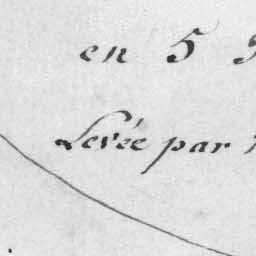 en 5
Levée par